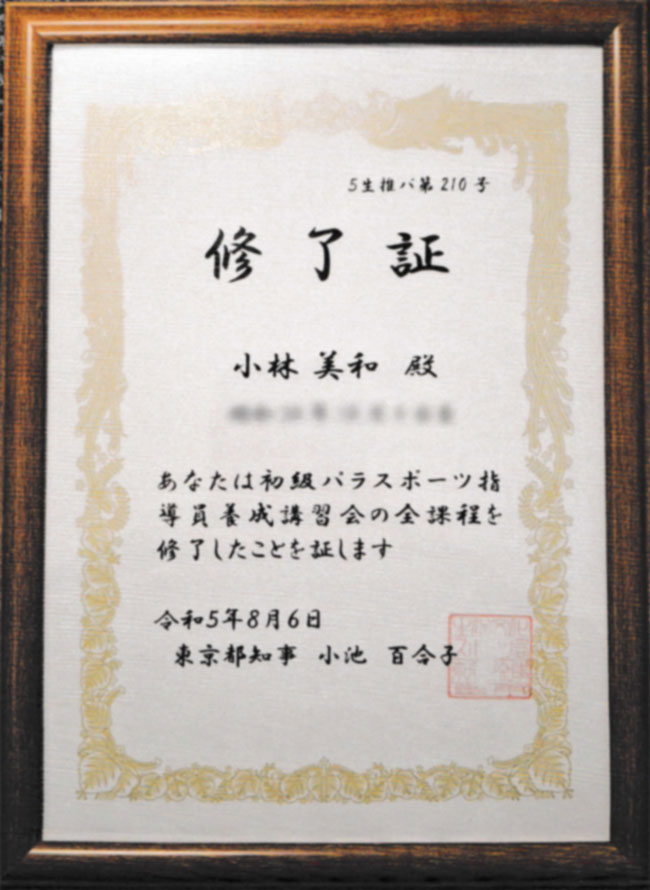 5生推パ第210号
修了証
小林 美和 殿
あなたは初級パラスポーツ指
導員養成講習会の全課程を
修了したことを証します
令和5年8月6日
東京都知事 小池 百合子